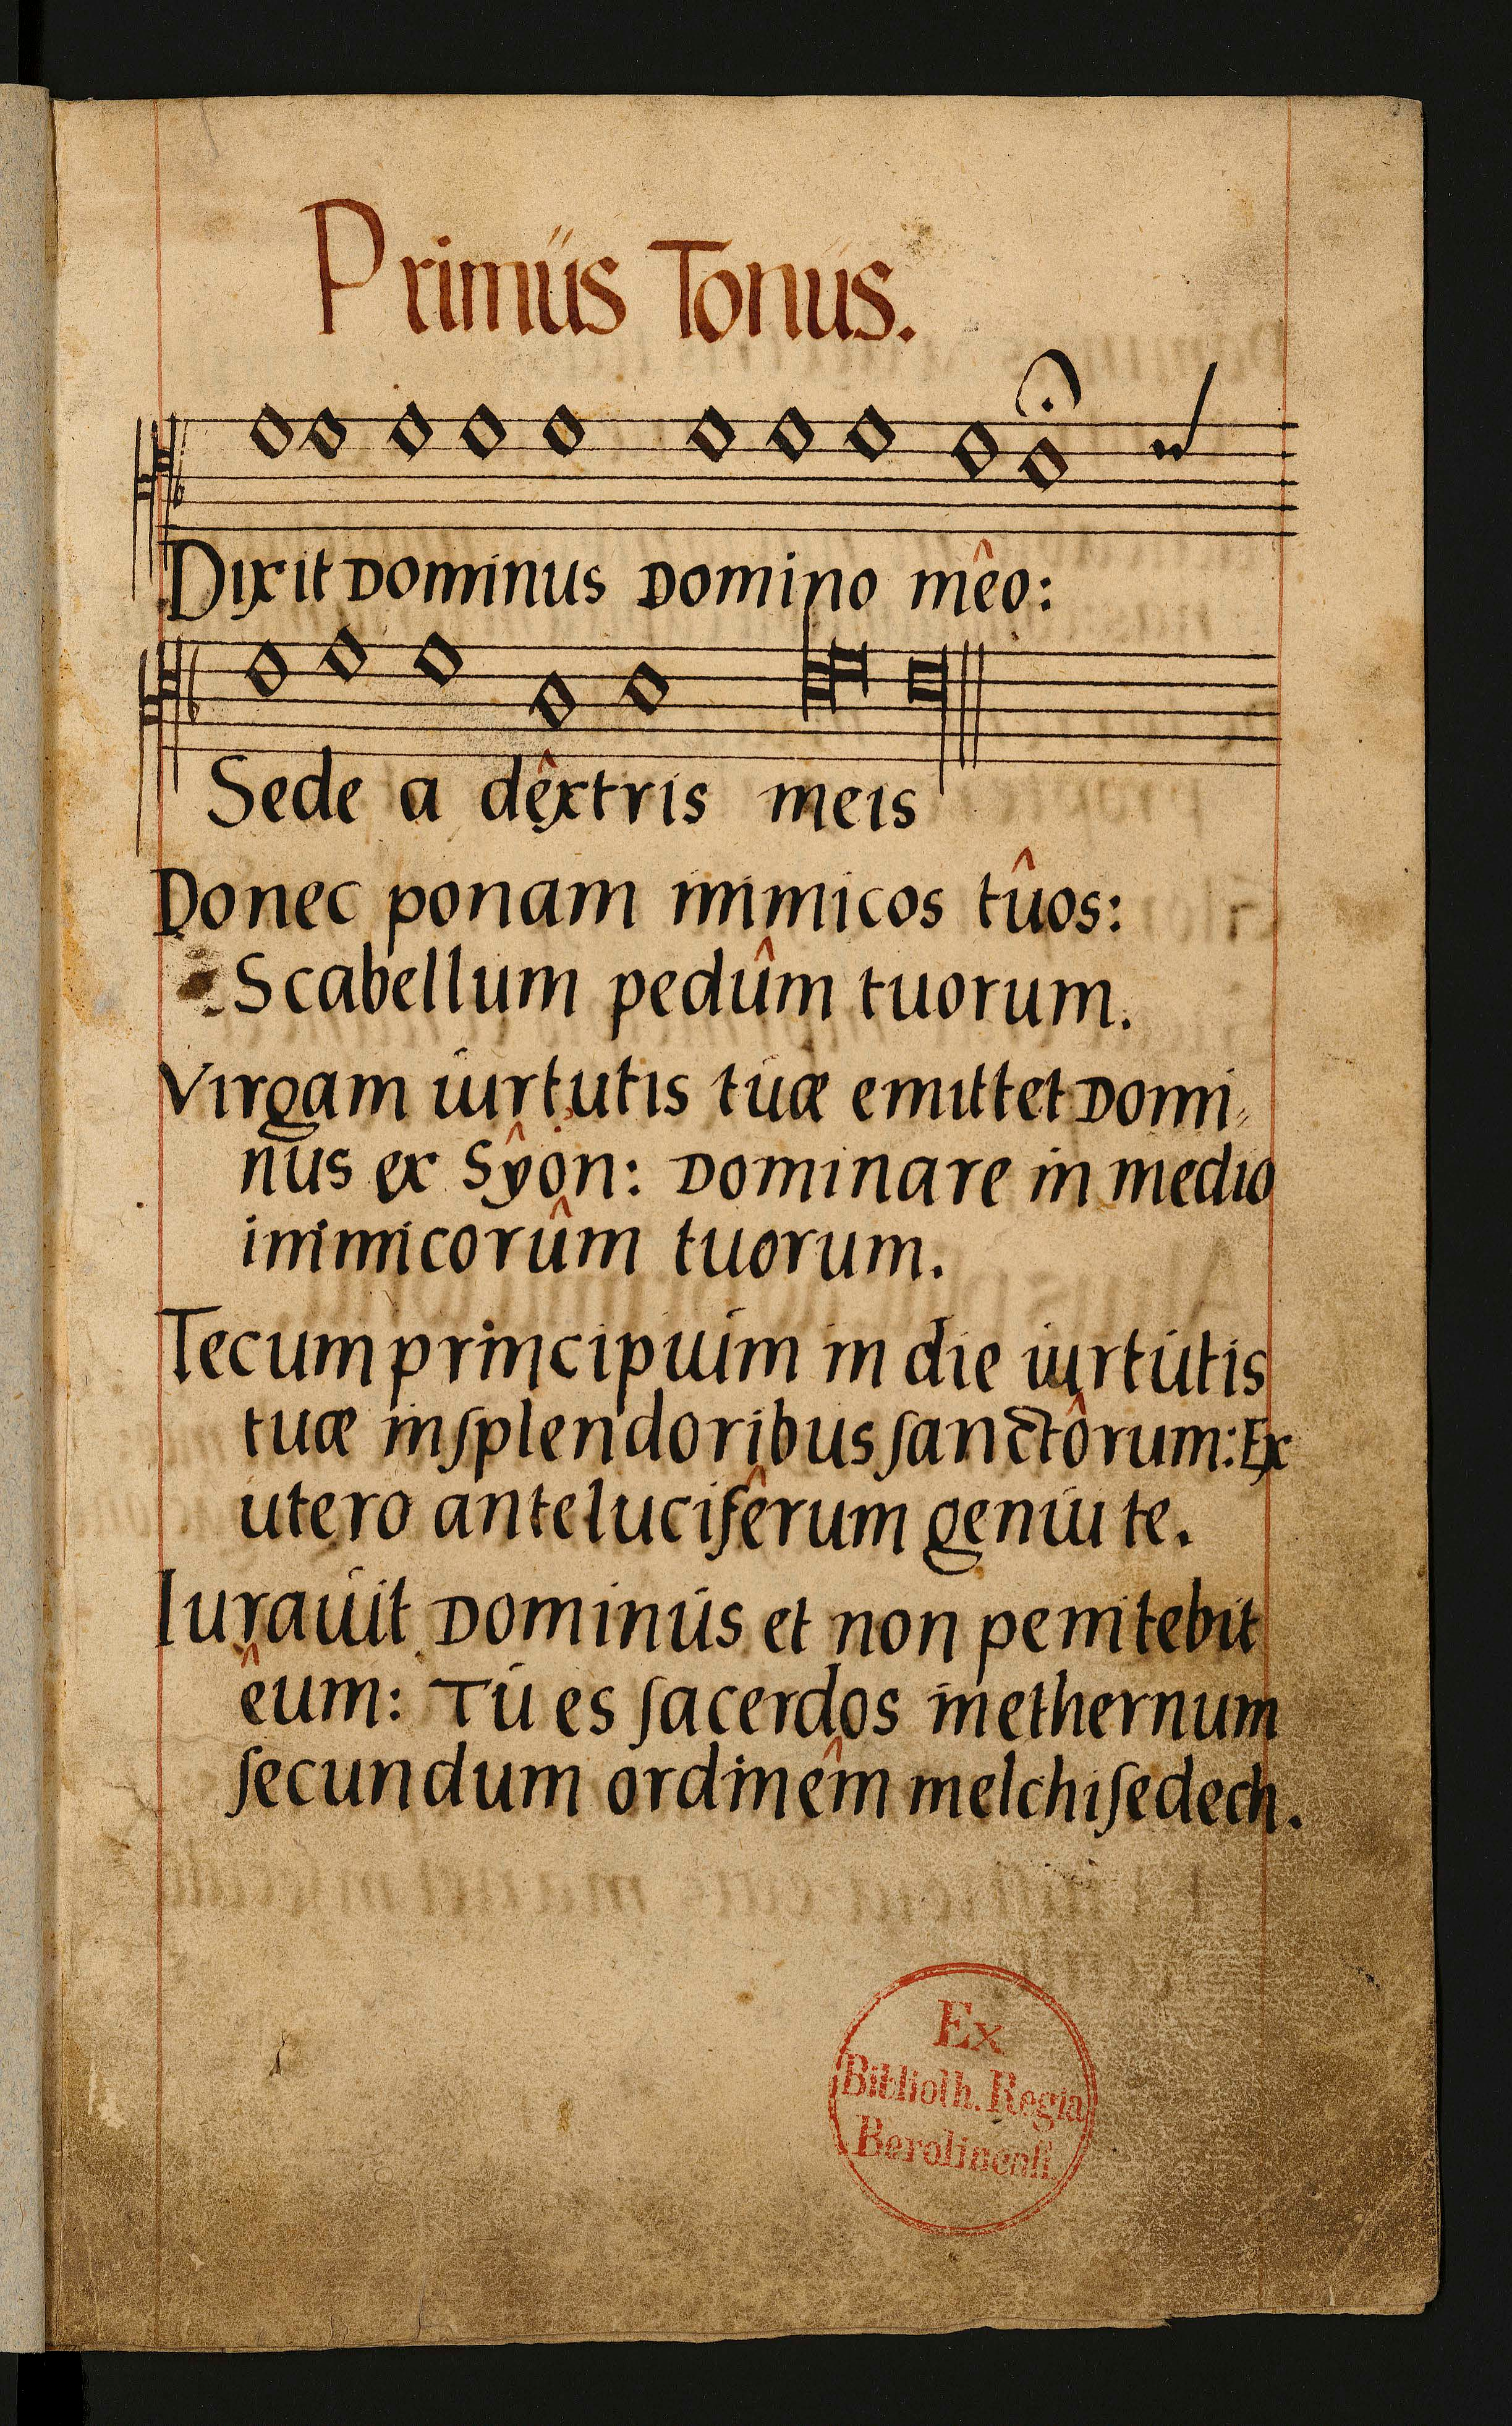 Primus Tonus.
Dixit Dominus Domino mêo:
Sede a dêxtris meis
Donec ponam inimicos tûos:
Scabellum pedûm tuorum.
Virgam uirtutis tuæ emittet Domi⸗
nus ex Sŷon: Dominare in medio
inimicorûm tuorum.
Tecum principuim in die uirtutis
tuæ in ſplendoribus ſanctôrum: Ex
utero ante lucifêrum genui te.
Iurauit Dominus et non penitebit
êum: Tu es ſacerdos in ethernum
ſecundum ordinêm melchiſedech.
Ex
Biblioth. Regia
Berolinenſi.